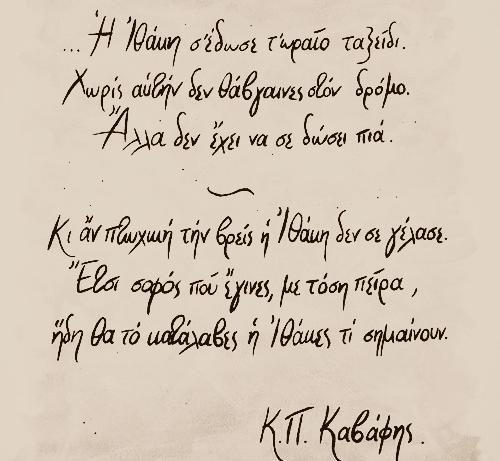 ...Ἡ Ἰθάκη σ'ἔδωσε τ'ὡραῖο ταξείδι.
Χωρίς αὐτήν δεν θἄβγαινες στόν δρόμο.
Ἄλλα δεν ἔχει να σε δώσει πιά.
Κι ἄν πτωχική τήν βρεῖς ἡ Ἰθάκη δεν σε γέλασε.
Ἔτσι σοφός πού ἔγινες, με τόση πεῖρα,
ἤδη θα τό κατάλαβες ἡ Ἰθάκες τί σημαίνουν.
Κ.Π. Καβάφης.